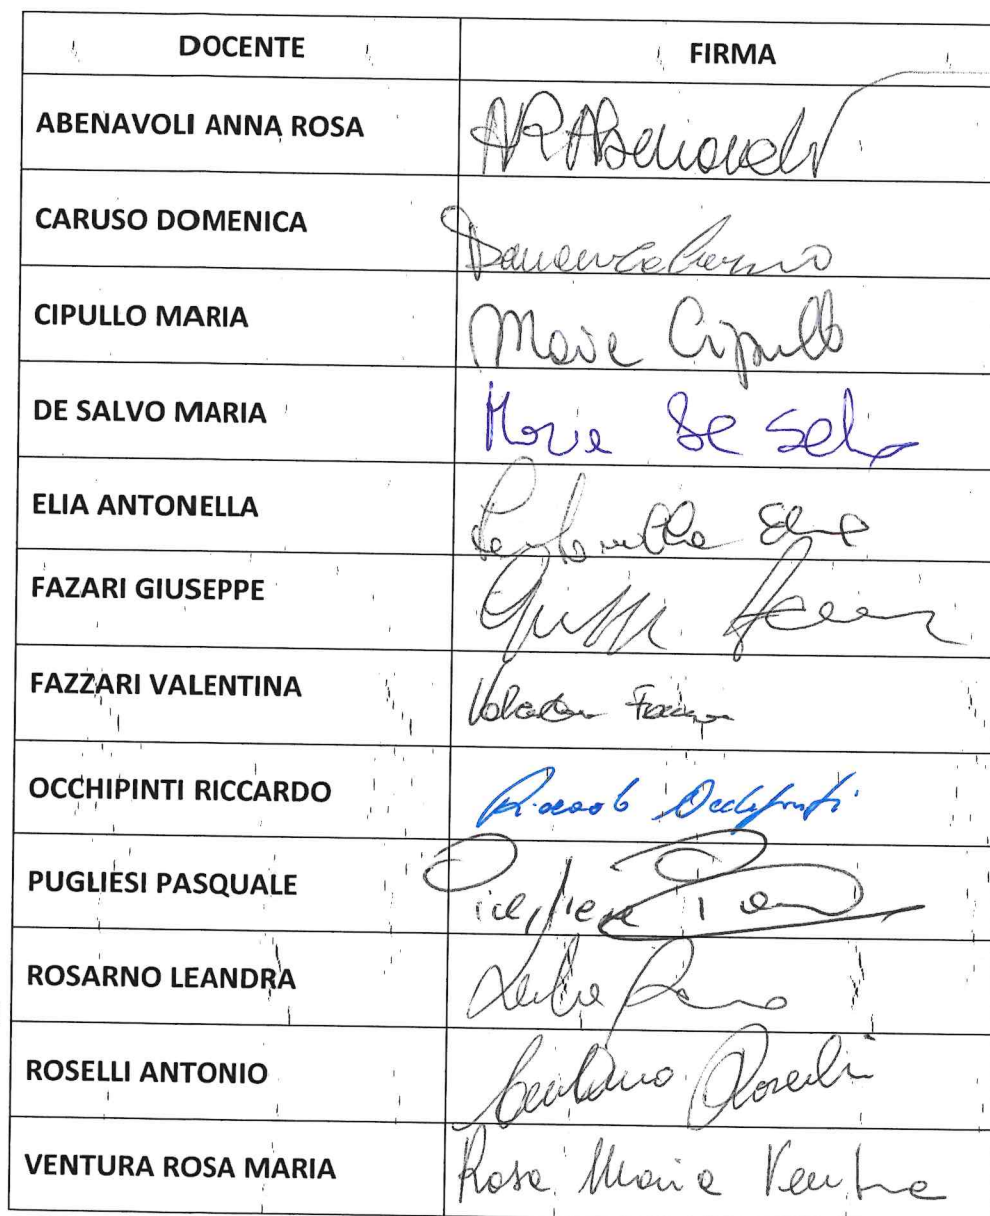 DOCENTE FIRMA
ABENAVOLI ANNA ROSA AR Abenavoli
CARUSO DOMENICA Domenica Caruso
CIPULLO MARIA Maria Cipullo
DE SALVO MARIA Maria De Salvo
ELIA ANTONELLA Antonella Elia
FAZARI GIUSEPPE
FAZZARI VALENTINA
OCCHIPINTI RICCARDO Riccardo Occhipinti
PUGLIESI PASQUALE
ROSARNO LEANDRA
ROSELLI ANTONIO Antonio Roselli
VENTURA ROSA MARIA Rosa Maria Ventura